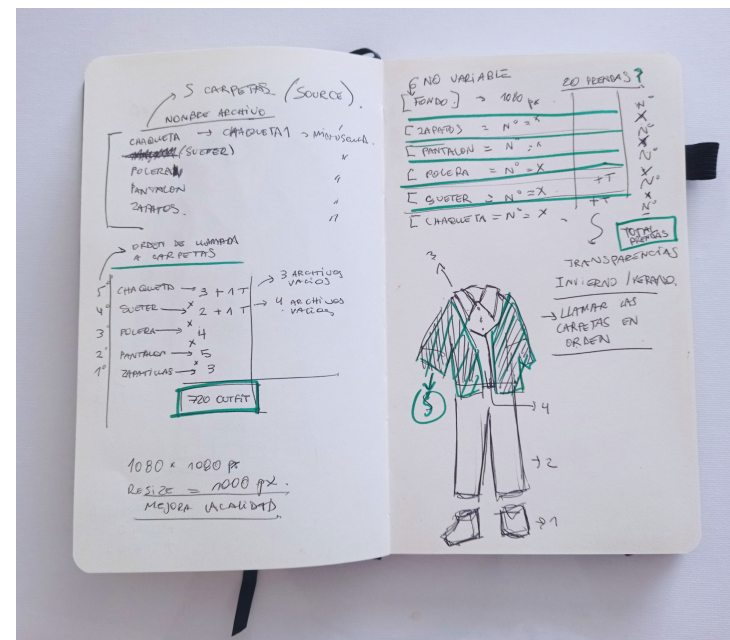 5 CARPETAS. (SOURCE).
NOMBRE ARCHIVO
CHAQUETA → CHAQUETA1 → MINÚSCULA.
(SUETER) "
POLERA "
PANTALON "
ZAPATOS. "
→ ORDEN DE LLAMADA
A CARPETAS
5° CHAQUETA → 3 + 1 T → 3 ARCHIVOS VACIOS
4° SUETER → x 2 + 1 T → 4 ARCHIVOS VACIOS
3° POLERA → x 4
2° PANTALON → x 5
1° ZAPATILLAS → x 3
720 OUTFIT
1080 x 1080 px
RESIZE = 1000 px.
MEJORA LA CALIDAD
NO VARIABLE
20 PRENDAS?
[FONDO.] → 1080 px
[ ZAPATOS = N° = X
[ PANTALON = N° = X
[ POLERA = N° = X
[ SUETER = N° = X +T
[ CHAQUETA = N° = X +T
N°
X
N°
X
N°
X
N°
X
N°
TOTAL PRENDAS
TRANSPARENCIAS
INVIERNO / VERANO.
→ LLAMAR LAS
CARPETAS EN
ORDEN
3
5
4
2
1